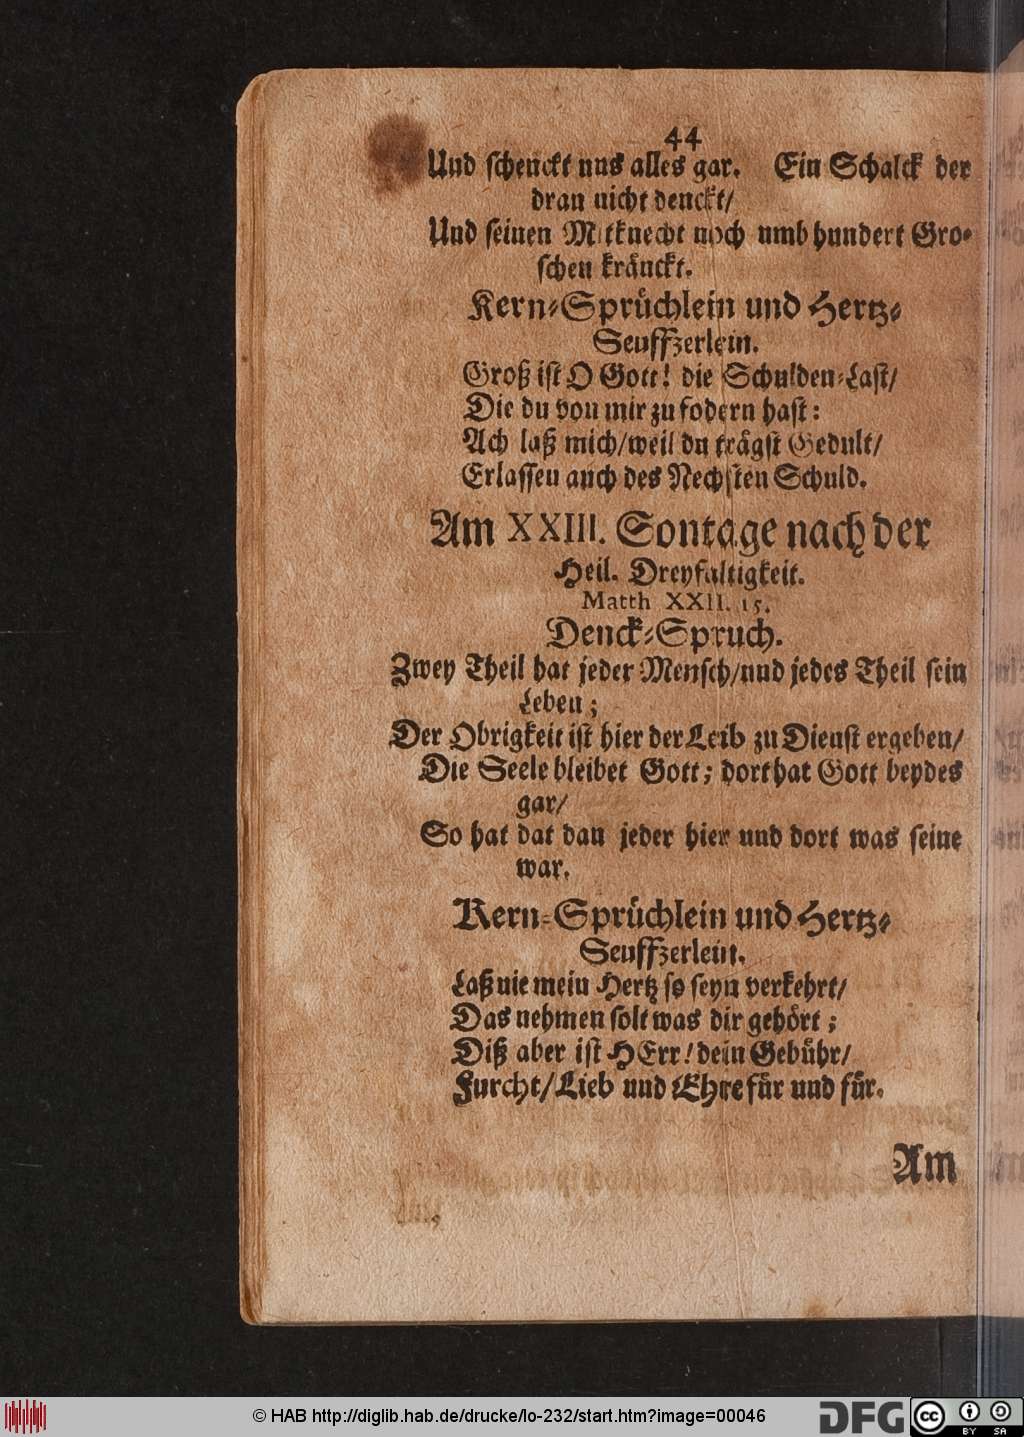 44
Und ſchenckt uns alles gar. Ein Schalck der
dran nicht denckt/
Und ſeinen Mitknecht noch umb hundert Gro-
ſchen kraͤnckt.
Kern-Spruͤchlein und Hertz-
Seuffzerlein.
Groß iſt O Gott! die Schulden-Laſt/
Die du von mir zu fodern haſt:
Ach laß mich/weil du traͤgſt Gedult/
Erlaſſen auch des Nechſten Schuld.
Am XXIII. Sontage nach der
Heil. Dreyfaltigkeit.
Matth XXII. 15.
Denck-Spruch.
Zwey Theil hat jeder Menſch/und jedes Theil ſein
Leben;
Der Obrigkeit iſt hier der Leib zu Dienſt ergeben/
Die Seele bleibet Gott; dort hat Gott beydes
gar/
So hat dat dan jeder hier und dort was ſeine
war.
Kern-Spruͤchlein und Hertz-
Seuffzerlein.
Laß nie mein Hertz ſo ſeyn verkehrt/
Das nehmen ſolt was dir gehoͤrt;
Diß aber iſt HErr! dein Gebuͤhr/
Furcht/Lieb und Ehre fuͤr und fuͤr.
Am
© HAB http://diglib.hab.de/drucke/lo-232/start.htm?image=00046
DFG
cc BY SA